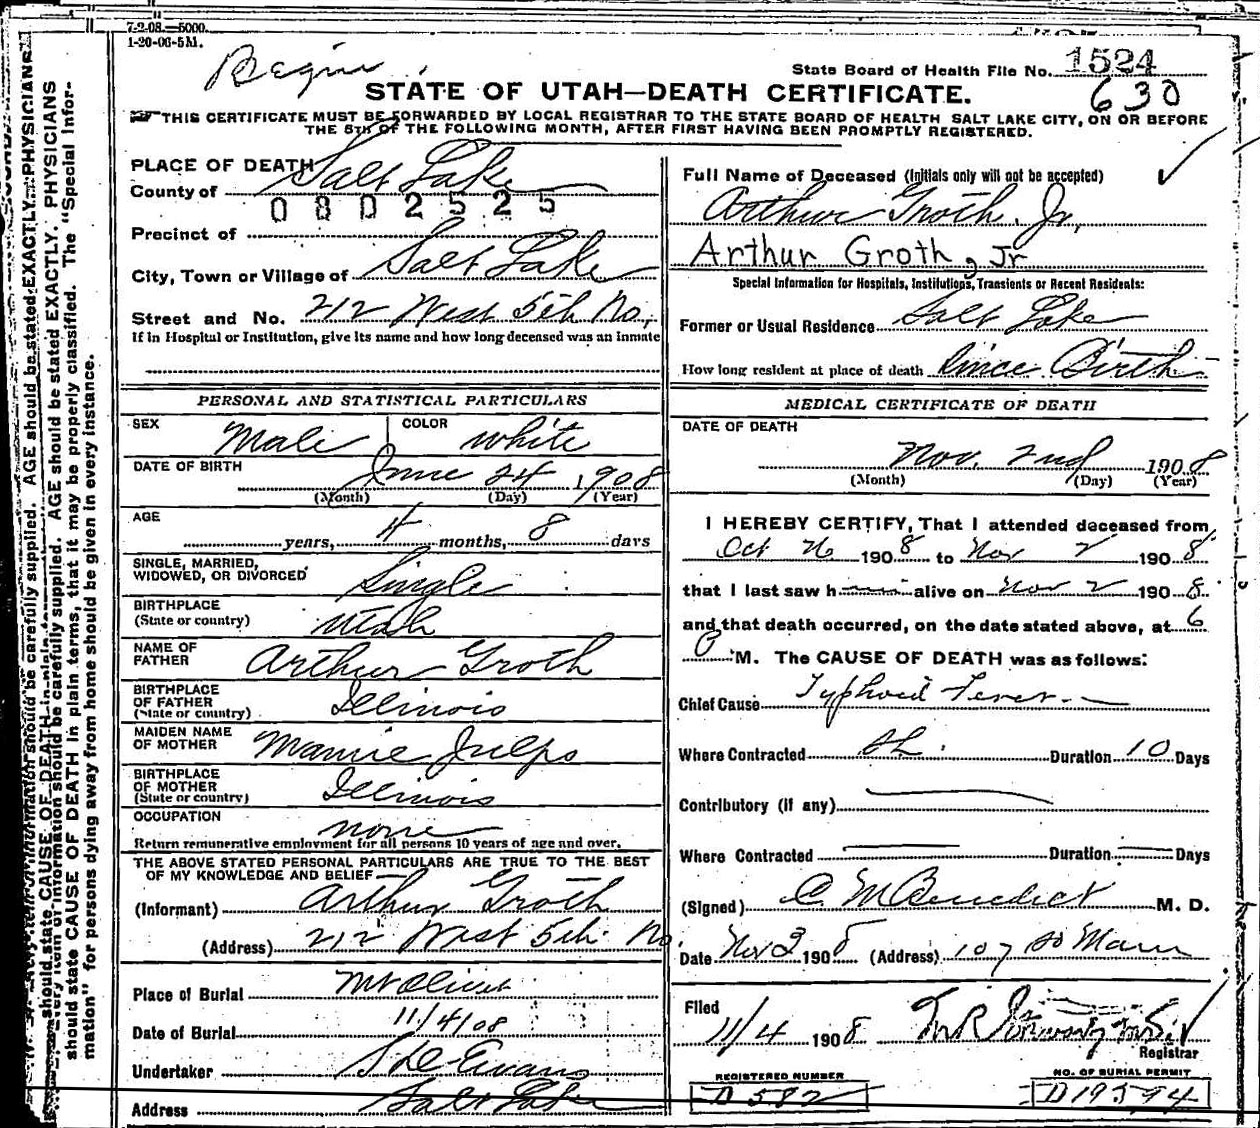 7-2-08.—5000.
1-20-06-5M.
State Board of Health File No. 1524
630
STATE OF UTAH—DEATH CERTIFICATE.
THIS CERTIFICATE MUST BE FORWARDED BY LOCAL REGISTRAR TO THE STATE BOARD OF HEALTH SALT LAKE CITY, ON OR BEFORE
THE 5TH OF THE FOLLOWING MONTH, AFTER FIRST HAVING BEEN PROMPTLY REGISTERED.
PLACE OF DEATH
County of Salt Lake
0802525
Precinct of
City, Town or Village of Salt Lake
Street and No. 212 West 5th No.
If in Hospital or Institution, give its name and how long deceased was an inmate
Full Name of Deceased (Initials only will not be accepted)
Arthur Groth Jr,
Arthur Groth, Jr
Special Information for Hospitals, Institutions, Transients or Recent Residents:
Former or Usual Residence Salt Lake
How long resident at place of death Since Birth
PERSONAL AND STATISTICAL PARTICULARS
SEX Male COLOR white
DATE OF BIRTH June 24 1908
(Month) (Day) (Year)
AGE
years, 4 months, 8 days
SINGLE, MARRIED,
WIDOWED, OR DIVORCED Single
BIRTHPLACE
(State or country) Utah
NAME OF
FATHER Arthur Groth
BIRTHPLACE
OF FATHER
(State or country) Illinois
MAIDEN NAME
OF MOTHER Mamie Julps
BIRTHPLACE
OF MOTHER
(State or country) Illinois
OCCUPATION none
Return remunerative employment for all persons 10 years of age and over.
THE ABOVE STATED PERSONAL PARTICULARS ARE TRUE TO THE BEST
OF MY KNOWLEDGE AND BELIEF—
(Informant) Arthur Groth
(Address) 212 West 5th No.
Place of Burial Mt Olivet
Date of Burial 11/4/08
Undertaker S D Evans
Address Salt Lake
MEDICAL CERTIFICATE OF DEATH
DATE OF DEATH
Nov. 2nd 1908
(Month) (Day) (Year)
I HEREBY CERTIFY, That I attended deceased from
Oct 26 1908 to Nov 2 1908
that I last saw h alive on Nov 2 1908
and that death occurred, on the date stated above, at 6
M. The CAUSE OF DEATH was as follows:
Chief Cause Typhoid Fever
Where Contracted SL. Duration 10 Days
Contributory (if any)
Where Contracted Duration Days
(Signed) C M Benedict M. D.
Date Nov 3 1908 (Address) 107 So Main
Filed
11/4 1908
Registrar
REGISTERED NUMBER
D 582
NO. OF BURIAL PERMIT
D19594
should state CAUSE OF DEATH in plain terms, that it may be properly classified. The "Special Infor-
mation" for persons dying away from home should be given in every instance.